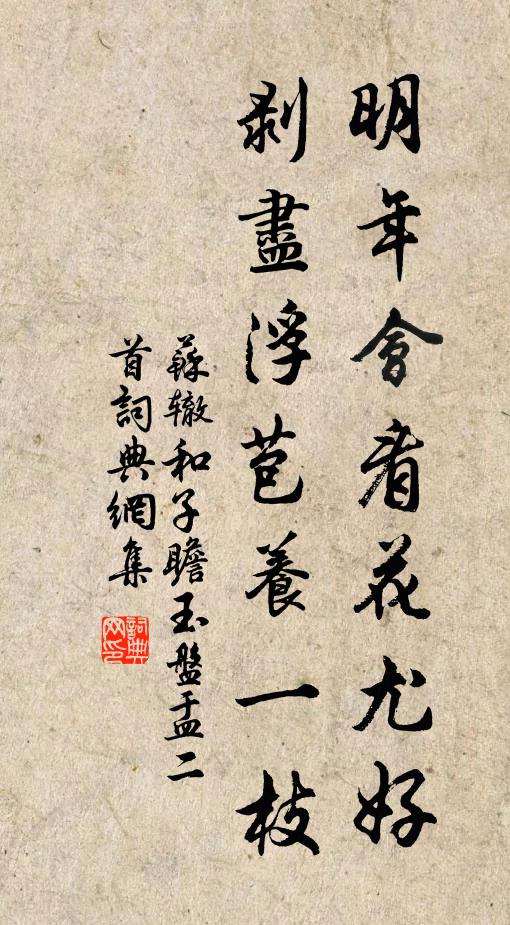 明年會看花尤好
剥盡浮苞養一枝
蘇辙和子瞻玉盤盂二
首詞典網集
詞典
网印